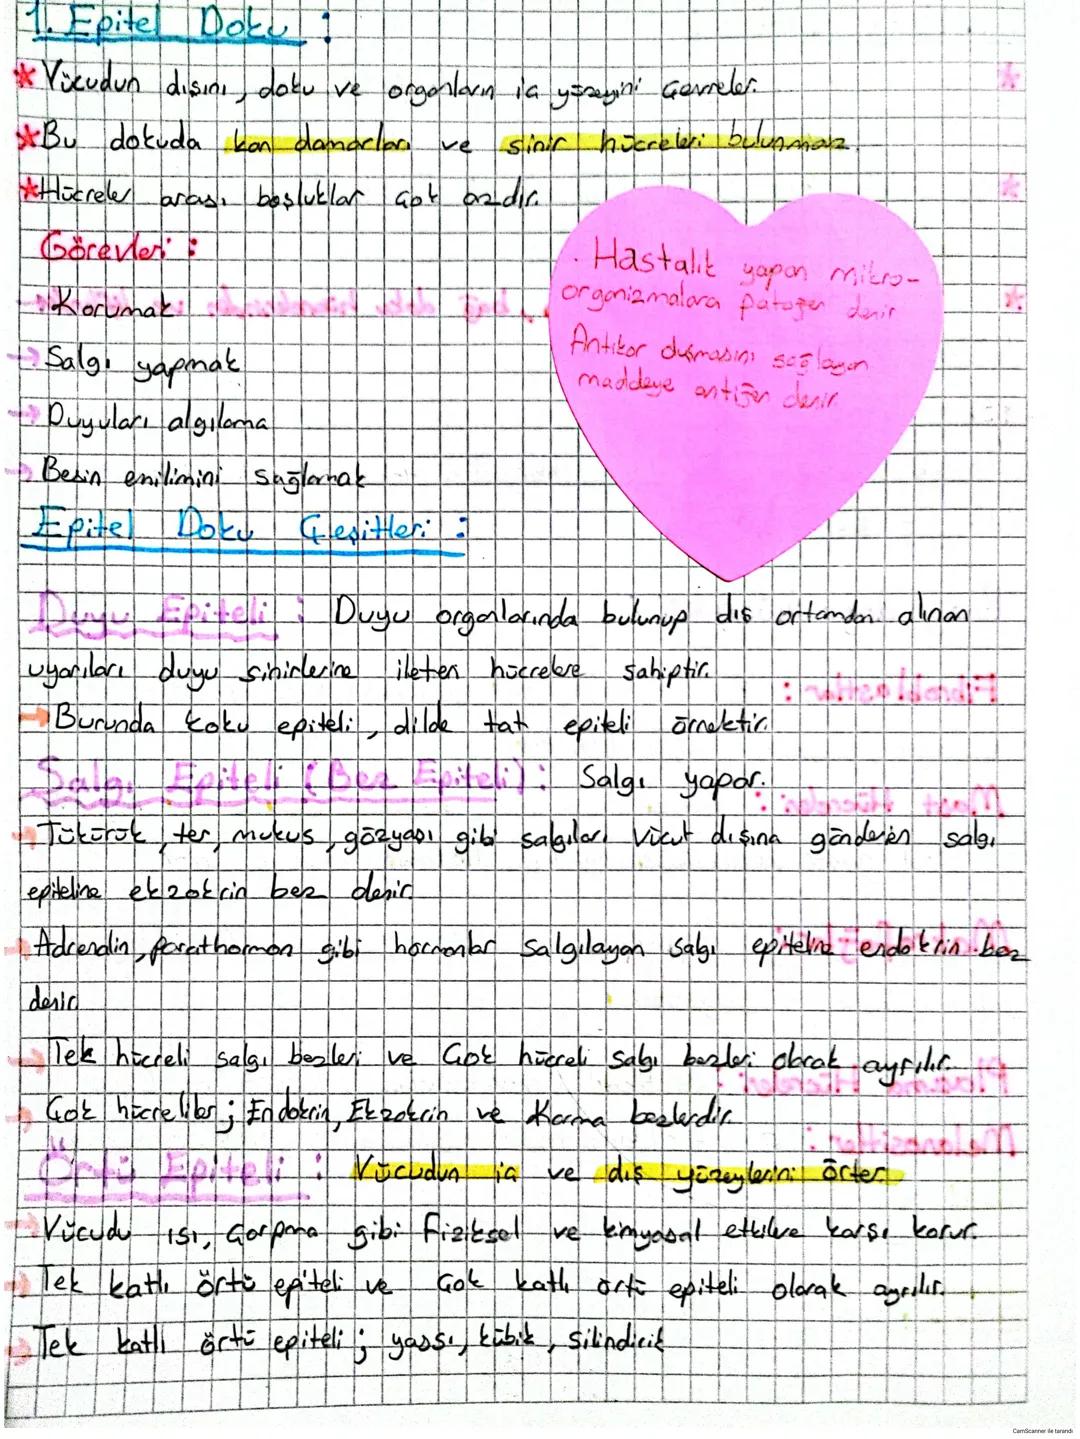 1. Epitel Doku :
* Vücudun dışını, doku ve organların iç yüzeyini çevreler.
* Bu dokuda kan damarları ve sinir hücreleri bulunmaz.
* Hücreler arası boşluklar çok azdır.
Görevleri :
→ Korumak
→ Salgı yapmak
→ Duyuları algılama
→ Besin emilimini sağlamak
. Hastalık yapan mikro-
organizmalara patojen denir
Antikor duşmasını sağlayan
maddeye antijen denir.
Epitel Doku Çeşitleri :
Duyu Epiteli : Duyu organlarında bulunup dış ortamdan alınan
uyarıları duyu sinirlerine ileten hücrelere sahiptir.
→ Burunda koku epiteli, dilde tat epiteli örnektir.
Salgı Epiteli (Bez Epiteli) : Salgı yapar.
→ Tükürük, ter, mukus, gözyaşı gibi salgıları vücut dışına gönderen salgı
epiteline ekzokrin bez denir.
→ Adrenalin, parathormon gibi hormonlar salgılayan salgı epiteline endokrin bez
denir.
→ Tek hücreli salgı bezleri ve Çok hücreli salgı bezleri olarak ayrılır.
→ Çok hücreliler ; Endokrin, Ekzokrin ve Karma bezlerdir.
Örtü Epiteli : Vücudun iç ve dış yüzeylerini örter.
→ Vücudu ısı, çarpma gibi fiziksel ve kimyasal etkilere karşı korur.
→ Tek katlı örtü epiteli ve Çok katlı örtü epiteli olarak ayrılır.
→ Tek katlı örtü epiteli ; yassı, kübik, silindirik
CamScanner ile tarandı